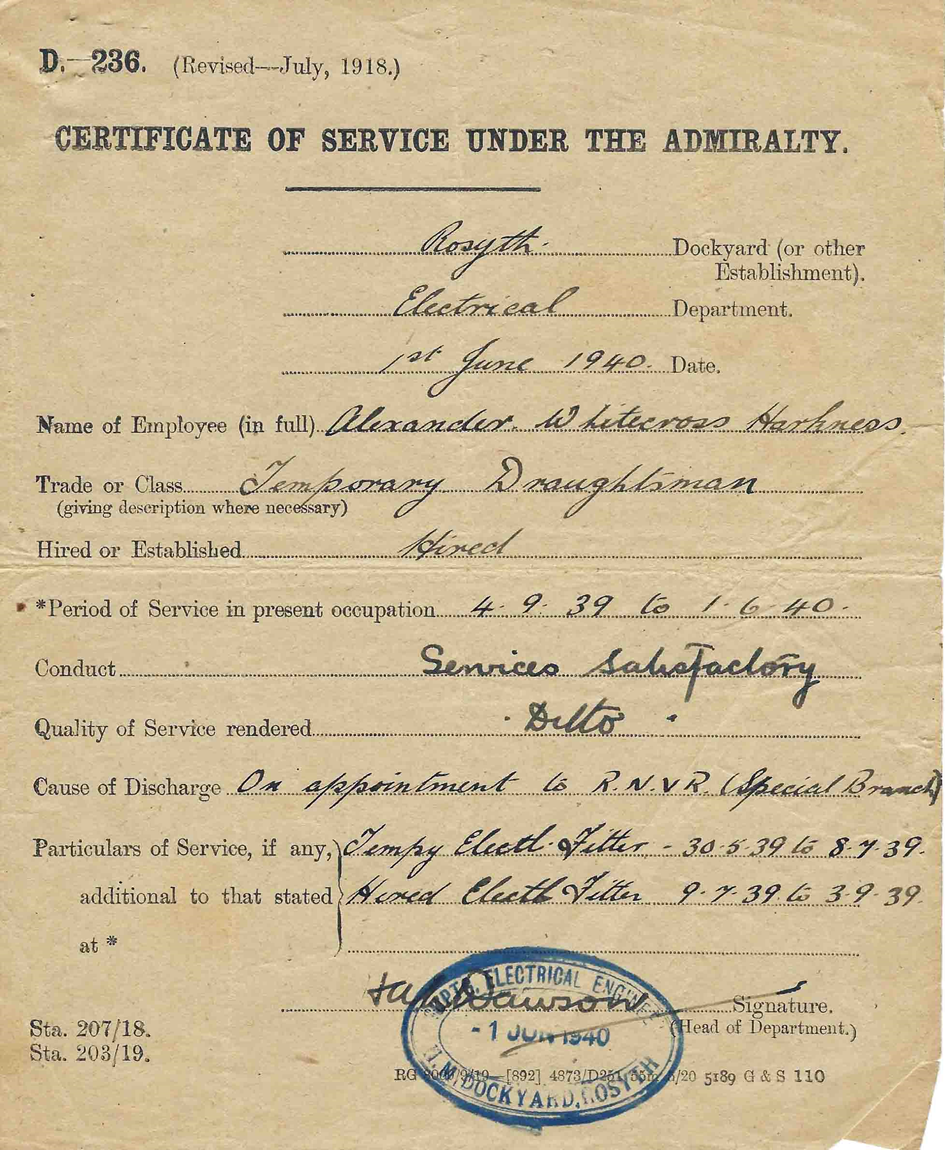 D.—236. (Revised—July, 1918.)
CERTIFICATE OF SERVICE UNDER THE ADMIRALTY.
Rosyth. Dockyard (or other
Establishment).
Electrical Department.
1st June 1940. Date.
Name of Employee (in full) Alexander. Whitecross Harkness.
Trade or Class Temporary Draughtsman
(giving description where necessary)
Hired or Established Hired
*Period of Service in present occupation 4.9.39 to 1.6.40.
Conduct Services Satisfactory
Quality of Service rendered Ditto
Cause of Discharge On appointment to R.N.V.R. (Special Branch)
Particulars of Service, if any, Tempy Electl. Fitter - 30.5.39 to 8.7.39.
additional to that stated Hired Electl Fitter 9.7.39 to 3.9.39.
at *
Dawson Signature.
(Head of Department.)
ELECTRICAL ENGINEER
- 1 JUN 1940
H.M. DOCKYARD, ROSYTH
Sta. 207/18.
Sta. 203/19.
RG /19—[892] 4873/D251 /20 5189 G & S 110